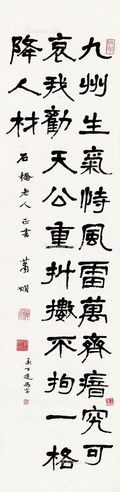 九州生氣恃風雷萬齊瘖究可
哀我勸天公重抖擻不拘一格
降人材
老人
蕭嫻
萬下遺馬字